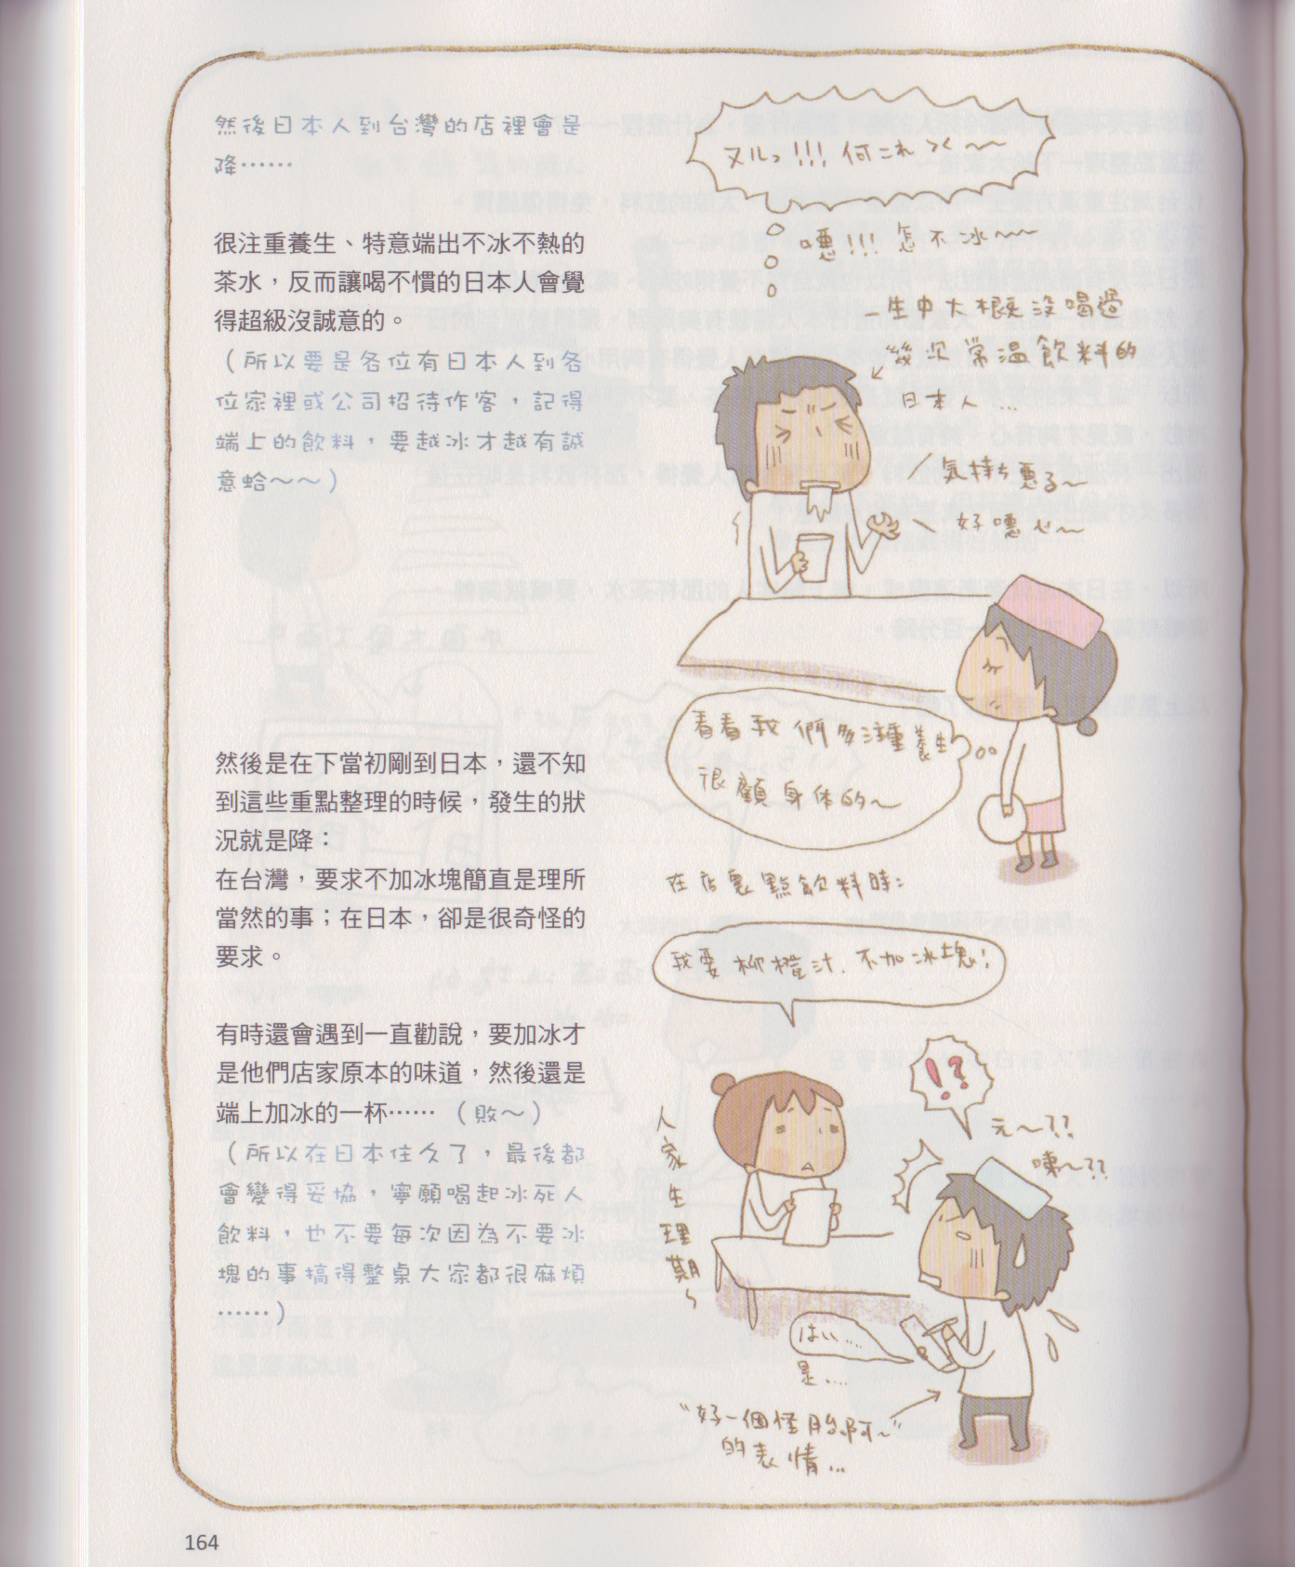 然後日本人到台灣的店裡會是
降……
很注重養生、特意端出不冰不熱的
茶水，反而讓喝不慣的日本人會覺
得超級沒誠意的。
（所以要是各位有日本人到各
位家裡或公司招待作客，記得
端上的飲料，要越冰才越有誠
意蛤～～）
ヌルっ!!!何これ
噁!!!怎不冰～～
一生中大概沒喝過
幾次常溫飲料的
日本人…
気持ち悪る～
好噁心～
看看我們多注重養生
很顧身体的～
然後是在下當初剛到日本，還不知
到這些重點整理的時候，發生的狀
況就是降：
在台灣，要求不加冰塊簡直是理所
當然的事；在日本，卻是很奇怪的
要求。
有時還會遇到一直勸說，要加冰才
是他們店家原本的味道，然後還是
端上加冰的一杯……（敗～）
（所以在日本住久了，最後都
會變得妥協，寧願喝起冰死人
飲料，也不要每次因為不要冰
塊的事搞得整桌大家都很麻煩
……）
在店裏點飲料時：
我要柳橙汁.不加冰塊!
!?
え～??
咦～??
人家生理期～
はい……
是……
"好一個怪胎啊～"
的表情…
164